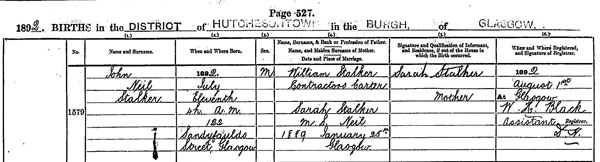 Page 527.
1892. BIRTHS in the DISTRICT of HUTCHESONTOWN in the BURGH of GLASGOW
(1.) (2.) (3.) (4.) (5.) (6.)
No. Name and Surname. When and Where Born. Sex. Name, Surname, & Rank or Profession of Father. Name, and Maiden Surname of Mother. Date and Place of Marriage. Signature and Qualification of Informant, and Residence, if out of the House in which the Birth occurred. When and Where Registered, and Signature of Registrar.
John 1892. M William Stalker Sarah Stalker 1892
Neil July Contractors Carter August 1st
Stalker Eleventh Mother At Glasgow
1579 4h. A.M. Sarah Stalker Black
122 M.S. Neil Assistant Registrar.
Street Glasgow 1889 January 25th
Glasgow.